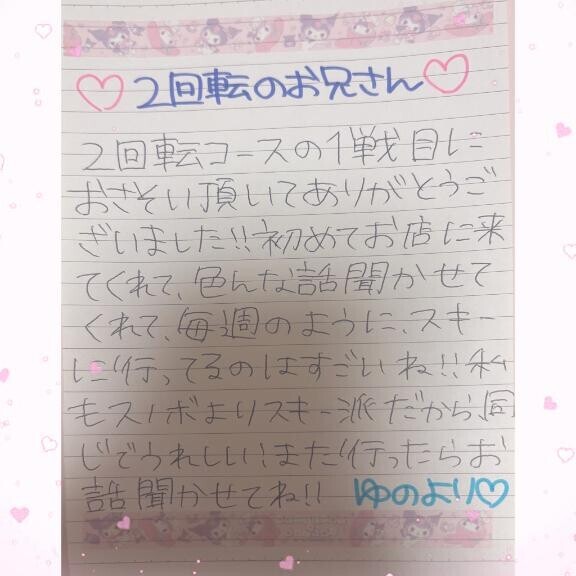 ♡2回転のお兄さん♡
2回転コースの1戦目に
おさそい頂いてありがとうご
ざいました!!初めてお店に来
てくれて、色んな話聞かせて
くれて、毎週のように、スキー
に行ってるのはすごいね!!私
もスノボよりスキー派だから、同
じでうれしい!また行ったらお
話聞かせてね!! ゆのより♡